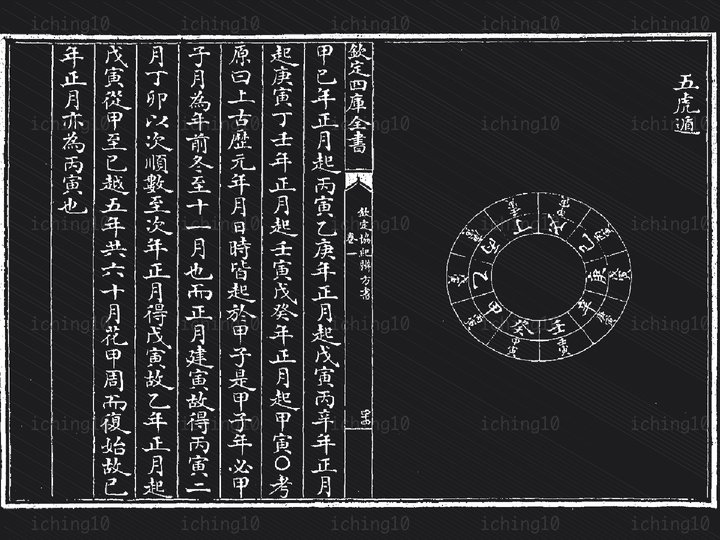 五虎遁
丁
戊
己
庚
辛
壬
癸
甲
乙
丙
欽定四庫全書
欽定協紀辨方書
卷一
甲己年正月起丙寅乙庚年正月起戊寅丙辛年正月
起庚寅丁壬年正月起壬寅戊癸年正月起甲寅○考
原曰上古歴元年月日時皆起於甲子是甲子年必甲
子月為年前冬至十一月也而正月建寅故得丙寅二
月丁卯以次順數至次年正月得戊寅故乙年正月起
戊寅從甲至已越五年共六十月花甲周而復始故已
年正月亦為丙寅也
iching10